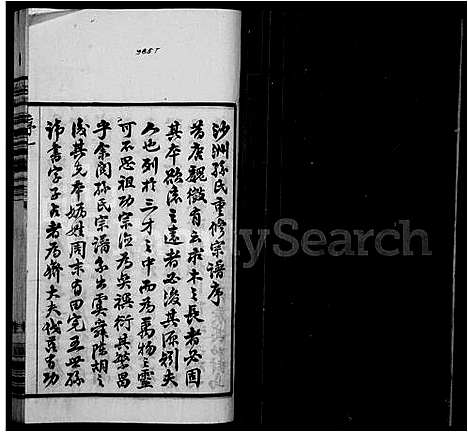 985T
沙洲孫氏重修宗譜序
昔唐魏徵有云求木之長者必固
其本欲流之遠者必浚其源矧夫
人也列於三才之中而為萬物之靈
可不思祖功宗德為奕禩衍其繁昌
乎余閱孫氏宗譜系出虞舜陳胡之
後其先本媯姓周末有田完五世孫
諱書字子占者為齊大夫伐莒有功
FamilySearch